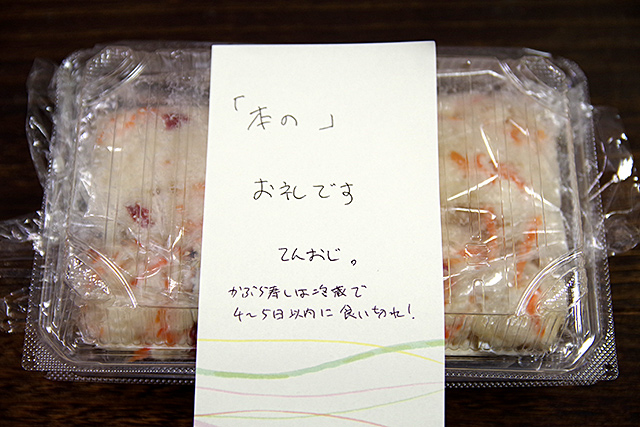 「本の 」
お礼です
てんおじ。
かぶら寿しは冷蔵で
4〜5日以内に食い切れ!